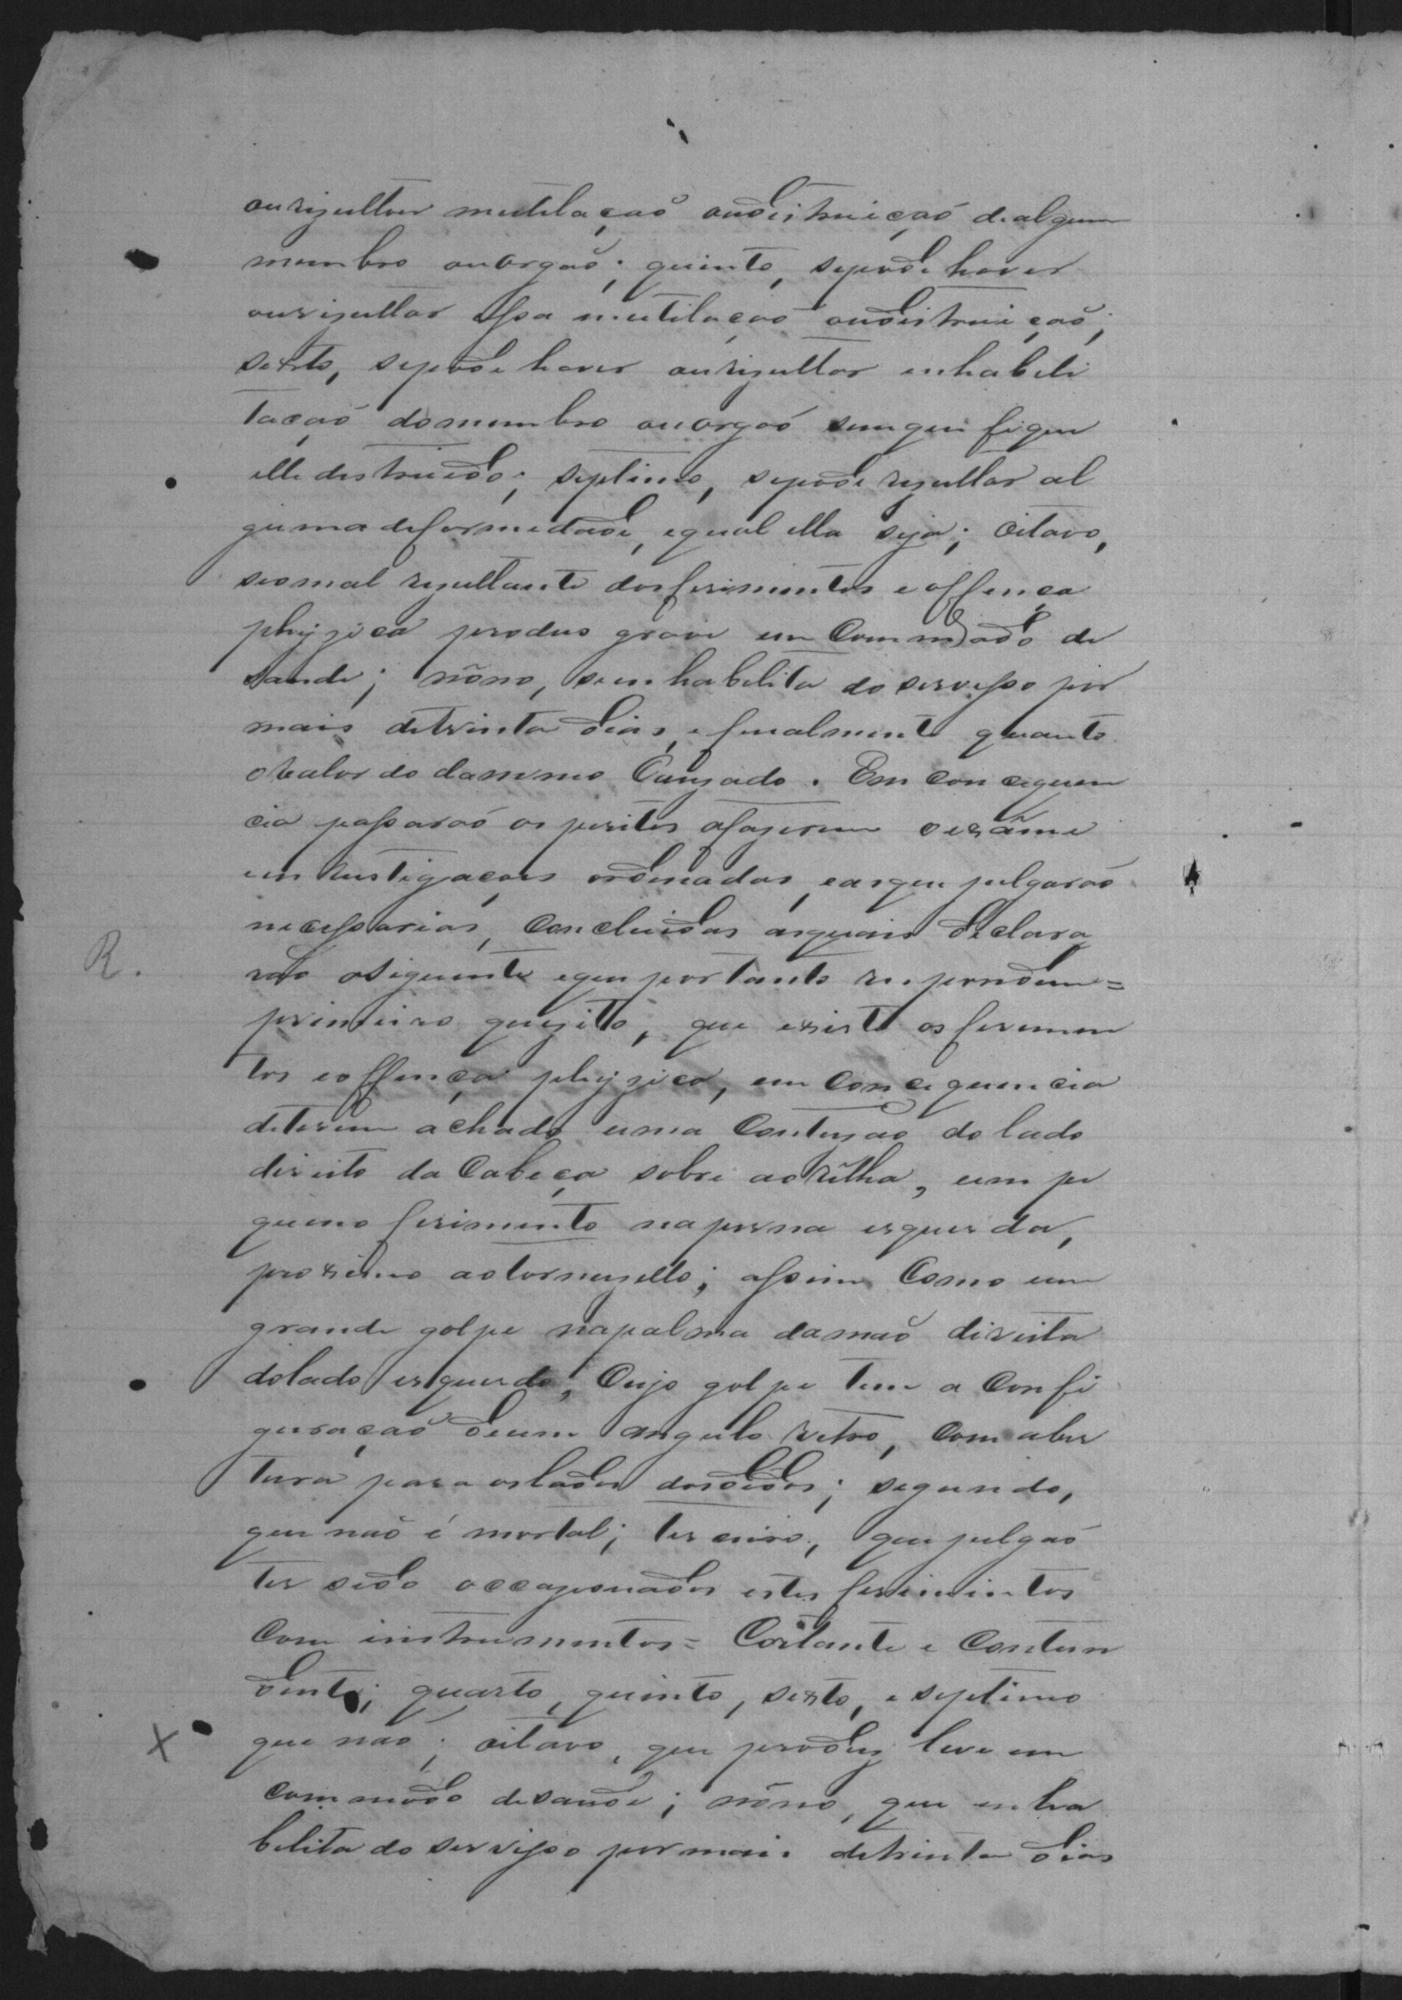 ou rezultou mutelação ou destruição de algum
membro ou orgaõ; quinto, se pode haver
ou rizultar essa mutilação ou destruição;
sexto, se pode haver ou rizultar enhabeli
tação do membro ou orgaõ sem que fique
elle destruido; septimo, se pode rezultar al
guma deformidade, e qual ella seja; oitavo,
se o mal rezultante dos ferimentos e offença
phyzica produs grave encommodo de
saude; nôno, se enhabelita do servisso por
mais de trinta dias, e finalmente quanto
o valor do damno cauzado. Em consequen
cia passaraõ os peritos a fazerem o exame
envestigações ordenadas, e as que julgaraõ
necessarias, concluidas as quais declara
raõ o seguinte e que portanto respondem =
R.
primeiro quezito, que existe os ferimen
tos e offença phyzica, em concequencia
de terem achado uma contuzaõ do lado
direito da cabeça sobre a orêlha, um pe
queno ferimento na perna esquerda,
proximo ao tornuzello; assim como um
grande golpe na palma da maõ direita
do lado esquerdo, cujo golpe tem a confi
guraçaõ de um angulo retro, com aber
tura para os lados dos dedos; segundo,
que naõ é mortal; terceiro, que julgaõ
ter sido occazionados estes ferimintos
com instrumentos = Cortante e Contun
dente; quarto, quinto, sexto, e septimo
que naõ; oitavo, que produz leve em
X
commodo de saude; nôno, que enha
belita do servisso por mais de trinta dias